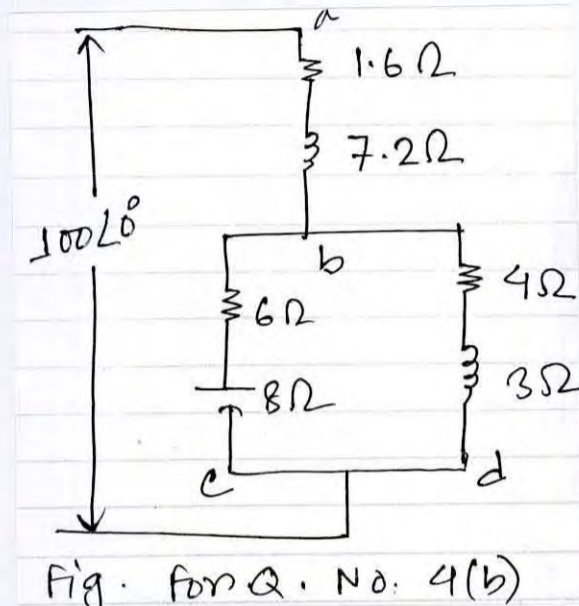 a
1.6Ω
7.2Ω
100∠0°
b
6Ω
4Ω
8Ω
3Ω
c
d
Fig. For Q. No. 4(b)